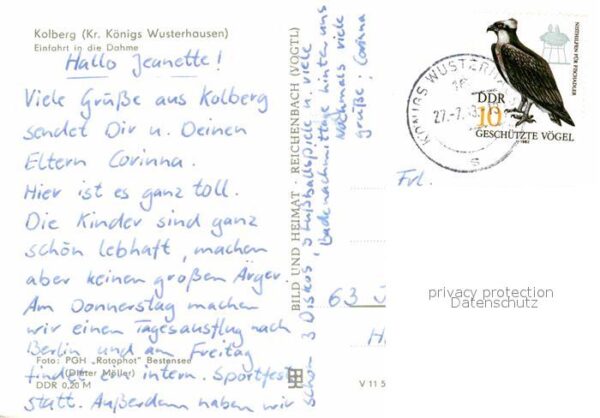 Kolberg (Kr. Königs Wusterhausen)
Einfahrt in die Dahme
Hallo Jeanette!
Viele Grüße aus Kolberg
sendet Dir u. Deinen
Eltern Corinna.
Hier ist es ganz toll.
Die Kinder sind ganz
schön lebhaft, machen
aber keinen großen Ärger.
Am Donnerstag machen
wir einen Tagesausflug nach
Berlin und am Freitag
findet ein intern. Sportfest
statt. Außerdem haben wir
schon 3 Diskos, Fußballspiele u. viele
Badenachmittage hinter uns
Nochmals viele
grüße; Corinna
Foto: PGH „Rotophot" Bestensee
(Dieter Möller)
DDR 0,20 M
BILD UND HEIMAT · REICHENBACH (VOGTL)
V 11 5
NISTHILFEN FÜR FISCHADLER
DDR
10
GESCHÜTZTE VÖGEL
1982
KÖNIGS WUSTERH
27.-7.
s
Frl.
63
H
privacy protection
Datenschutz